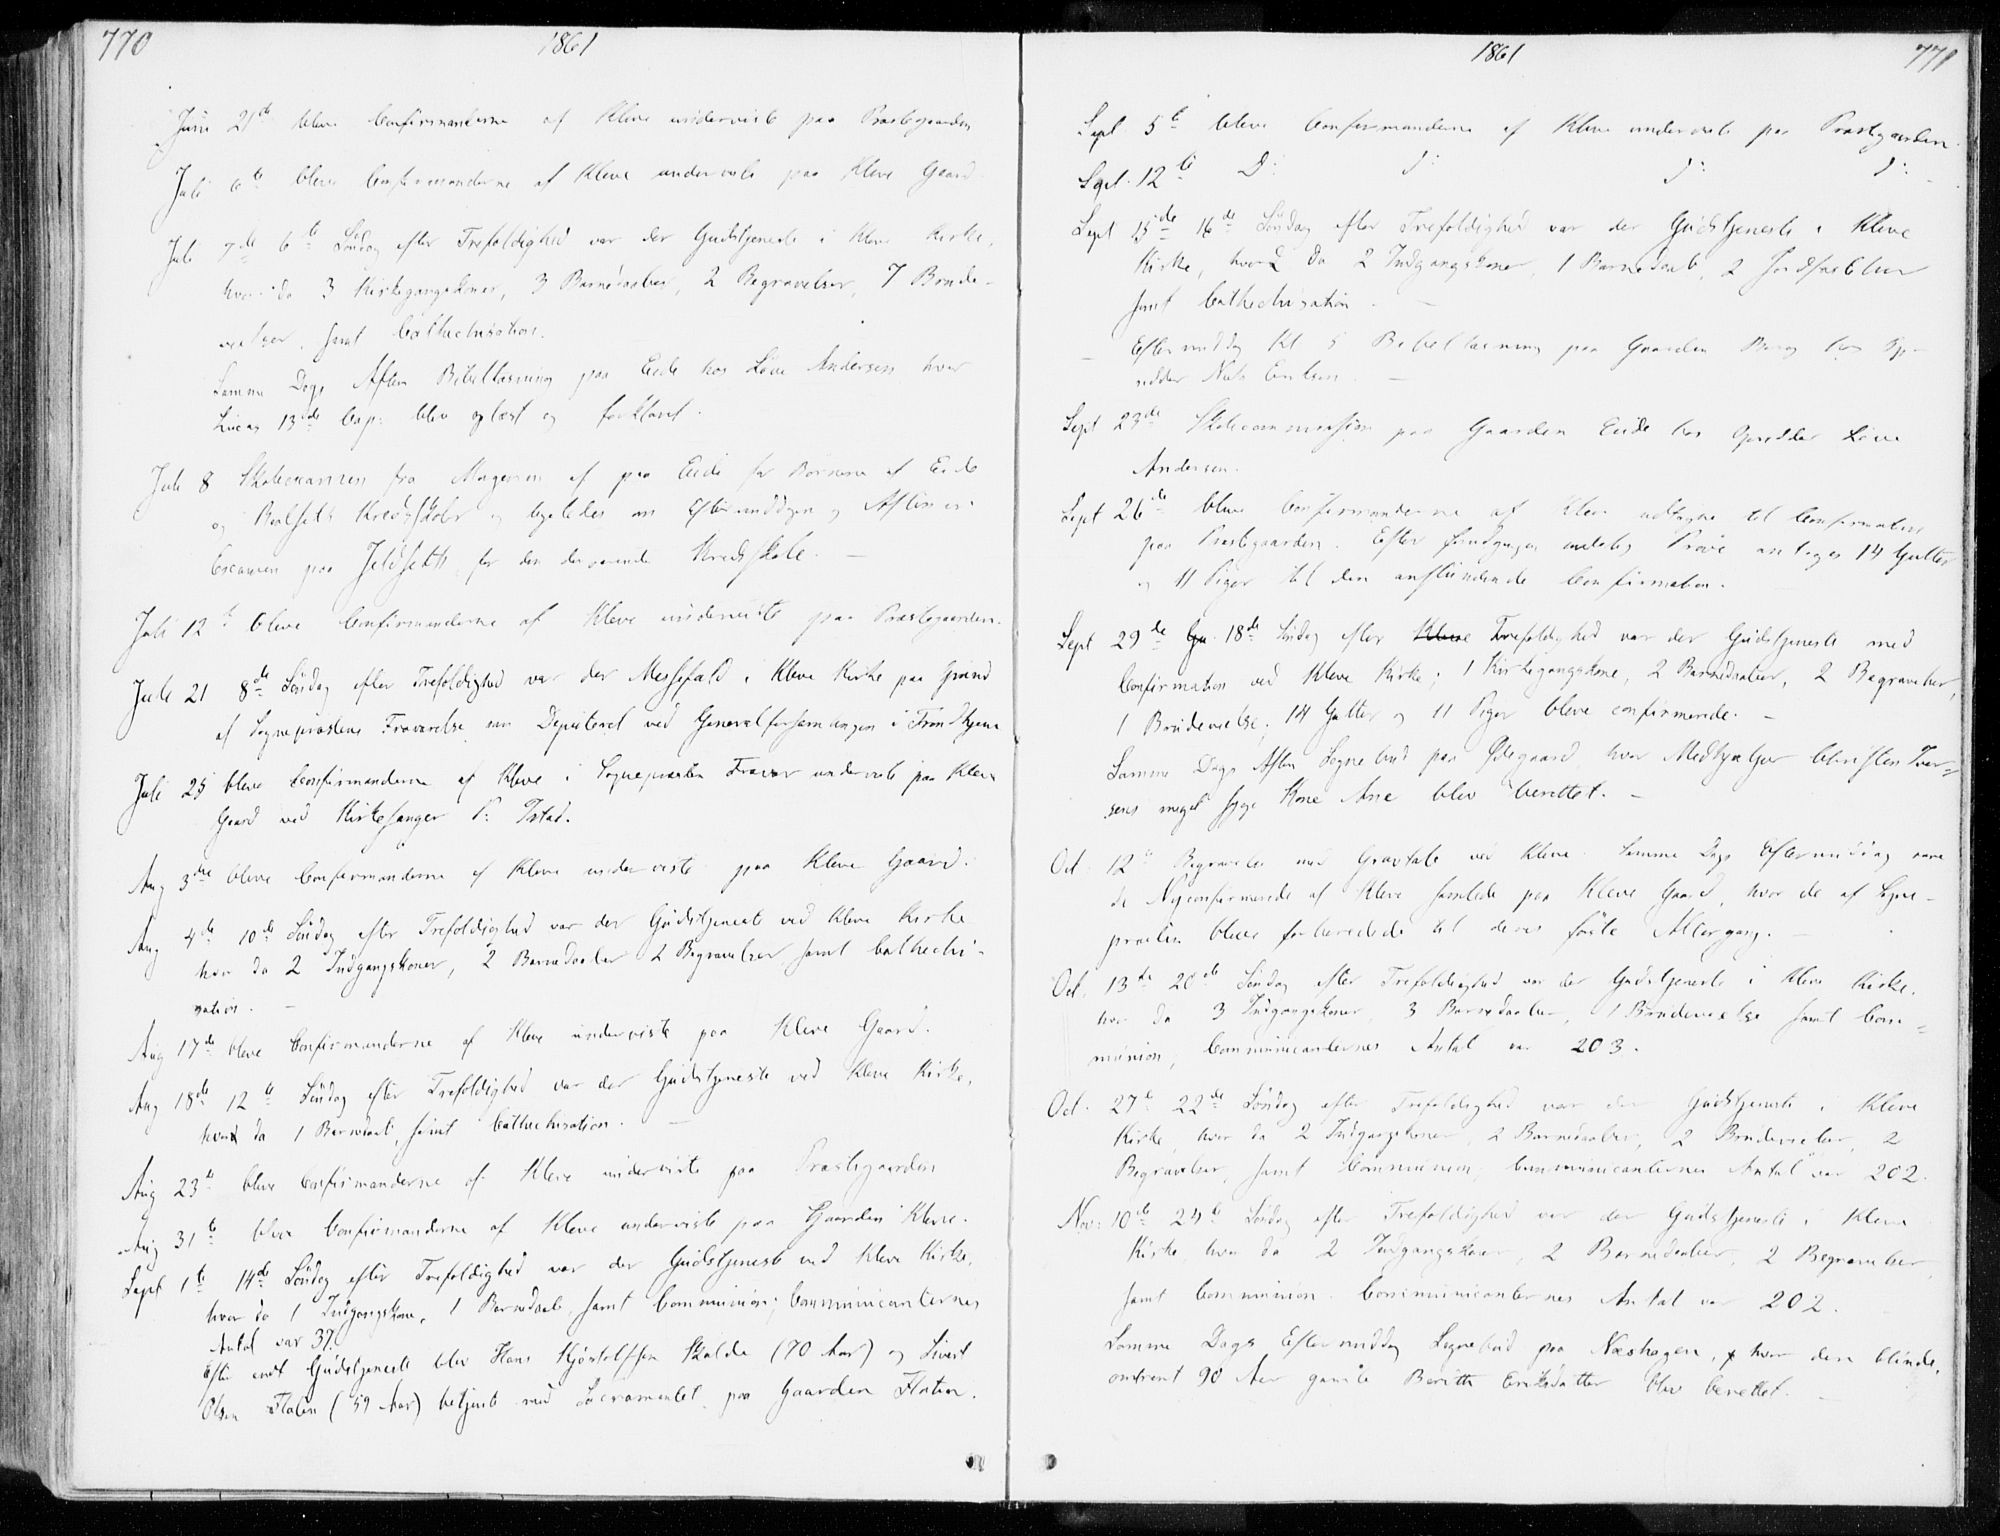 770
1861
Juni 21de bleve Confirmanderne af Kleve underviste paa Præstegaarden
Juli 6te bleve Confirmanderne af Kleve underviste paa Kleve Gaard.
Juli 7de 6te Søndag efter Trefoldighed var der Gudstjeneste i Kleve Kirke,
hvor da 3 Kirkegangskoner, 3 Barnedaaber, 2 Begravelser, 7 Brude-
vielser, samt Cathechisation.
Samme Dags Aften Bibellæsning paa Eide hos Lõve Andersen hvor
Lucas 13de Cap: blev oplæst og forklaret.
Juli 8 Skoleexamen fra Morgenen af paa Eide for Børnene af Eide
og Kredsskoler og ligeledes om Eftermiddagen og Aftenen
Examen paa for den derværende Kredsskole. —
Juli 12te bleve Confirmanderne af Kleve underviste paa Præstegaarden.
Juli 21 8de Søndag efter Trefoldighed var der Messefald i Kleve Kirke paa Grund
af Sognepræstens Fraværelse som Deputeret ved Generalforsamlingen i Trondhjem
Juli 25 bleve Confirmanderne af Kleve i Sognepræstens Fravær underviste paa Kleve
Gaard ved Kirkesanger P: Istad.
Aug 3die bleve Confirmanderne af Kleve underviste paa Kleve Gaard.
Aug 4de 10de Søndag efter Trefoldighed var der Gudstjeneste ved Kleve Kirke
hvor da 2 Indgangskoner, 2 Barnedaaber 2 Begravelser, samt Cathechi-
sation. —
Aug 17de bleve Confirmanderne af Kleve underviste paa Kleve Gaard.
Aug 18de 12te Søndag efter Trefoldighed var der Gudstjeneste ved Kleve Kirke,
hvor da 1 Barnedaab, samt Cathechisation. —
Aug 23de bleve Confirmanderne af Kleve underviste paa Præstegaarden
Aug 31te bleve Confirmanderne af Kleve underviste paa Gaarden Kleve.
Sept 1te 14de Søndag efter Trefoldighed var der Gudstjeneste ved Kleve Kirke,
hvor da 1 Indgangskone, 1 Barnedaab, samt Communion; Communicanternes
Antal var 37.
Efter endt Gudstjeneste blev Hans Skalde (70 Aar) og Sivert
Olsen Flaten (59 Aar) betjente med Sacramentet paa Gaarden Flaten.
1861
771
Sept 5te bleve Confirmanderne af Kleve underviste paa Præstegaarden.
Sept. 12te D: d: d: d:
Sept 15de 16de Søndag efter Trefoldighed var der Gudstjeneste i Kleve
Kirke, hvor da 2 Indgangskoner, 1 Barnedaab, 2 Jordfæstelser
samt Cathechisation. —
— Eftermiddag Kl 5 Bibellæsning paa Gaarden Berg hos Op-
sidder Niels Eriksen. —
Sept 23de Skolecommission paa Gaarden Eide hos Opsidder Lõve
Andersen.
Sept 26de bleve Confirmanderne af Kleve udtagne til Confirmation
paa Præstegaarden. Efter Prøve antages 14 Gutter
og 11 Piger til den anstundende Confirmation.
Sept 29de 18de Søndag efter Kleve Trefoldighed var der Gudstjeneste med
Confirmation ved Kleve Kirke; 1 Kirkegangskone, 2 Barnedaaber, 2 Begravelser,
1 Brudevielse; 14 Gutter og 11 Piger bleve confirmerede. —
Samme Dags Aften Sognebud paa Ødegaard, hvor Medhjælper Christen Iver-
sens meget syge Kone Ane blev berettet. —
Oct. 12te Begravelse med Gravtale ved Kleve. Samme Dags Eftermiddag vare
de Nyconfirmerede af Kleve samlede paa Kleve Gaard, hvor de af Sogne-
præsten bleve forberedede til deres første Altergang. —
Oct. 13de 20de Søndag efter Trefoldighed var der Gudstjeneste i Kleve Kirke.
hvor da 3 Indgangskoner, 3 Barnedaaber, 1 Brudevielse samt Com-
munion, Communicanternes Antal var 203.
Oct. 27de 22de Søndag efter Trefoldighed var der Gudstjeneste i Kleve
Kirke, hvor da 2 Indgangskoner, 2 Barnedaaber, 2 Brudevielser, 2
Begravelser, samt Communion; Communicanternes Antal var 202.
Nov: 10de 24de Søndag efter Trefoldighed var der Gudstjeneste i Kleve
Kirke, hvor da 2 Indgangskoner, 2 Barnedaaber, 2 Begravelser
samt Communion. Communicanternes Antal var 202.
Samme Dags Eftermiddag Sognebud paa Næshagen, hvor den blinde,
omtrent 90 Aar gamle Berith Eriksdatter blev berettet. —